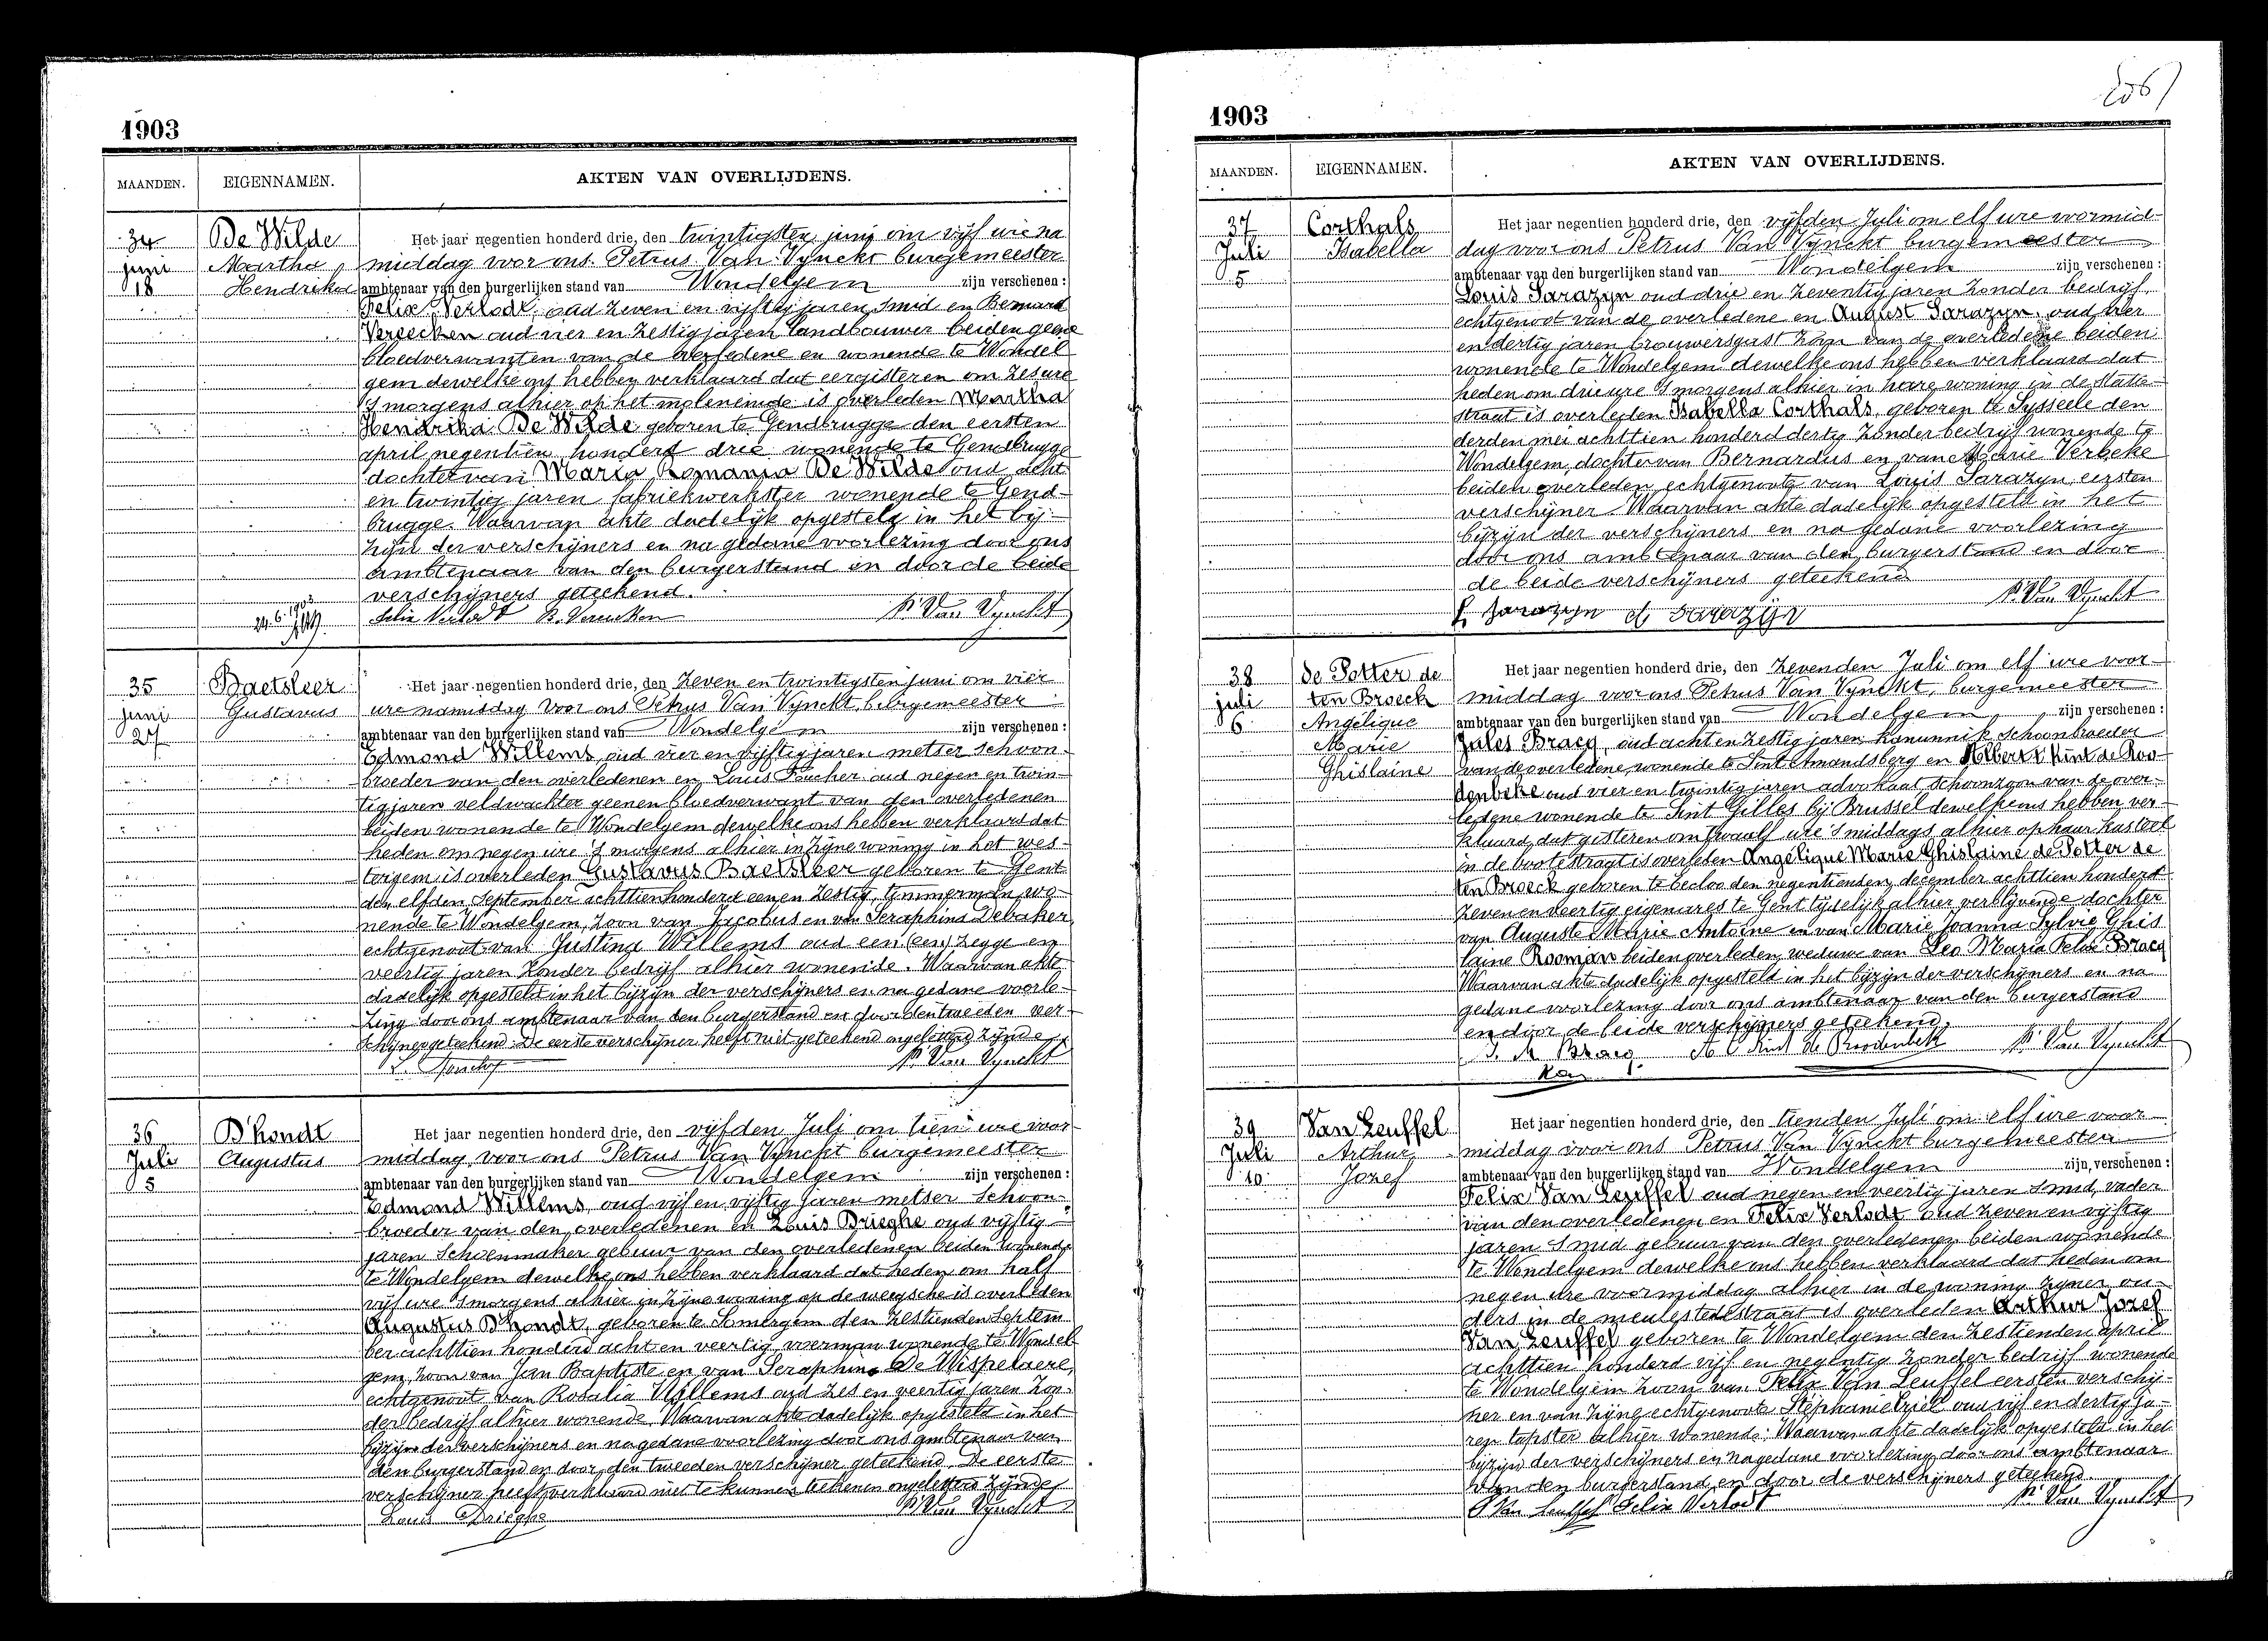 1903
MAANDEN.
EIGENNAMEN.
AKTEN VAN OVERLIJDENS.
34
juni
18
De Wilde
Martha
Hendrika
Het jaar negentien honderd drie, den twintigsten juni om vijf ure na
middag voor ons Petrus Van Vynckt burgemeester
ambtenaar van den burgerlijken stand van Wondelgem zijn verschenen :
Felix Verlodt oud zeven en vijftig jaren smid en Bernard
Vereecken oud vier en zestig jaren landbouwer beiden geene
bloedverwanten van de overledene en wonende te Wondel
gem dewelke ons hebben verklaard dat eergisteren om zes ure
's morgens alhier op het moleneinde is overleden Martha
Hendrika De Wilde geboren te Gendbrugge den eersten
april negentien honderd drie wonende te Gendbrugge
dochter van Maria Romania De Wilde oud acht
en twintig jaren fabriekwerkster wonende te Gend-
brugge. Waarvan akte dadelijk opgesteld in het bij-
zijn der verschijners en na gedane voorlezing door ons
ambtenaar van den burgerstand en door de beide
verschijners geteekend.
24.6.1903
Felix Verlodt B. Vereecken P. Van Vynckt
35
juni
27
Baetsleer
Gustavus
Het jaar negentien honderd drie, den zeven en twintigsten juni om vier
ure namiddag voor ons Petrus Van Vynckt, burgemeester
ambtenaar van den burgerlijken stand van Wondelgem zijn verschenen :
Edmond Willems, oud vier en vijftig jaren metser schoon-
broeder van den overledenen en Louis Foucher oud negen en twin-
tig jaren veldwachter geenen bloedverwant van den overledenen
beiden wonende te Wondelgem dewelke ons hebben verklaard dat
heden om negen ure 's morgens alhier in zijne woning in het wes-
tergem is overleden Gustavus Baetsleer geboren te Gent
den elfden September achttien honderd een en zestig, timmerman, wo-
nende te Wondelgem, zoon van Jacobus en van Seraphina Debaker
echtgenoot van Justina Willems oud een (een) zegge en
veertig jaren zonder bedrijf alhier wonende. Waarvan akte
dadelijk opgesteld in het bijzijn der verschijners en na gedane voorle-
zing door ons ambtenaar van den burgerstand en door den tweeden ver-
schijner geteekend. De eerste verschijner heeft niet geteekend ongeletterd zijnde
P. Van Vynckt
36
Juli
5
D'hondt
Augustus
Het jaar negentien honderd drie, den vijfden Juli om tien ure voor
middag voor ons Petrus Van Vynckt burgemeester
ambtenaar van den burgerlijken stand van Wondelgem zijn verschenen :
Edmond Willems, oud vijf en vijftig jaren metser schoon-
broeder van den overledenen en Louis Drieghe oud vijftig
jaren schoenmaker gebuur van den overledenen beiden wonende
te Wondelgem dewelke ons hebben verklaard dat heden om half
vijf ure 's morgens alhier in zijne woning op de weegsche is overleden
Augustus D'hondt, geboren te Somergem den zestienden Septem
ber achttien honderd acht en veertig, voerman wonende te Wondel
gem, zoon van Jan Baptiste en van Seraphina De Wispelaere,
echtgenoot van Rosalia Willems oud zes en veertig jaren zon-
der bedrijf alhier wonende. Waarvan akte dadelijk opgesteld in het
bijzijn der verschijners en na gedane voorlezing door ons ambtenaar van
den burgerstand en door den tweeden verschijner geteekend. De eerste
verschijner heeft verklaard niet te kunnen teekenen ongeletterd zijnde
Louis Drieghe P. Van Vynckt
1903
MAANDEN.
EIGENNAMEN.
AKTEN VAN OVERLIJDENS.
37
Juli
5
Corthals
Isabella
Het jaar negentien honderd drie, den vijfden Juli om elf ure voormid-
dag voor ons Petrus Van Vynckt burgemeester
ambtenaar van den burgerlijken stand van Wondelgem zijn verschenen :
Louis Sarazyn oud drie en zeventig jaren zonder bedrijf,
echtgenoot van de overledene en August Sarazyn, oud vier
en dertig jaren brouwersgast zoon van de overledene beiden
wonende te Wondelgem dewelke ons hebben verklaard dat
heden om drie ure 's morgens alhier in hare woning in de
straat is overleden Isabella Corthals, geboren te Sysseele den
derden mei achttien honderd dertig zonder bedrijf wonende te
Wondelgem, dochter van Bernardus en van Marie Verbeke
beiden overleden echtgenoote van Louis Sarazyn, eersten
verschijner. Waarvan akte dadelijk opgesteld in het
bijzijn der verschijners en na gedane voorlezing
door ons ambtenaar van den burgerstand en door
de beide verschijners geteekend
P. Van Vynckt
L Sarazyn A Sarazijn
38
juli
6
de Potter de
ten Broeck
Angélique
Marie
Ghislaine
Het jaar negentien honderd drie, den zevenden Juli om elf ure voor-
middag voor ons Petrus Van Vynckt, burgemeester
ambtenaar van den burgerlijken stand van Wondelgem zijn verschenen :
Jules Bracq, oud acht en zestig jaren kanunnik schoonbroeder
van de overledene, wonende te Sint Amandsberg en Albert Kint de Roo-
denbeke oud vier en twintig jaren advokaat schoonzoon van de over-
ledene wonende te Sint Gilles bij Brussel dewelke ons hebben ver-
klaard dat gisteren om twaalf ure 's middags alhier op haar kasteel
in de bootestraat is overleden Angélique Marie Ghislaine de Potter de
ten Broeck geboren te Loo den negentienden december achttien honderd
zeven en veertig eigenares te Gent tijdelijk alhier verblijvende dochter
van Auguste Marie Antoine en van Marie Joanna Sylvie Ghis
laine Rooman beiden overleden, weduwe van Leo Maria Felix Bracq
Waarvan akte dadelijk opgesteld in het bijzijn der verschijners en na
gedane voorlezing door ons ambtenaar van den burgerstand
en door de beide verschijners geteekend.
J. M Bracq A Kint de Roodenbeke P. Van Vynckt
Kan
39
Juli
10
Van Leuffel
Arthur
Jozef
Het jaar negentien honderd drie, den tienden Juli om elf ure voor-
middag voor ons Petrus Van Vynckt burgemeester
ambtenaar van den burgerlijken stand van Wondelgem zijn verschenen :
Felix Van Leuffel oud negen en veertig jaren smid, vader
van den overledenen en Felix Verlodt oud zeven en vijftig
jaren smid gebuur van den overledenen beiden wonende
te Wondelgem dewelke ons hebben verklaard dat heden om
negen ure voormiddag alhier in de woning zijner ou-
ders in de meulestedestraat is overleden Arthur Jozef
Van Leuffel geboren te Wondelgem den zestienden april
achttien honderd vijf en negentig zonder bedrijf wonende
te Wondelgem zoon van Felix Van Leuffel eersten verschij-
ner en van zijne echtgenoote Stéphanie oud vijf en dertig ja-
ren tapster alhier wonende. Waarvan akte dadelijk opgesteld in het
bijzijn der verschijners en na gedane voorlezing door ons ambtenaar
van den burgerstand en door de verschijners geteekend
Van Leuffel Felix Verlodt P. Van Vynckt